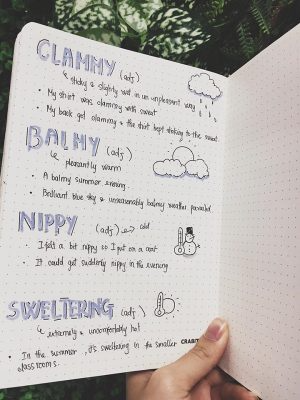 CLAMMY (adj)
sticky & slightly wet in an unpleasant way
• My shirt was clammy with sweat
• My back got clammy & the shirt kept sticking to the sweat
BALMY (adj)
pleasantly warm
• A balmy summer evening.
• Brilliant blue sky & unseasonably balmy weather prevailed.
NIPPY (adj) → cold
• I felt a bit nippy so I put on a coat
• It could get suddenly nippy in the evening
SWELTERING (adj)
extremely & uncomfortably hot
• In the summer, it's sweltering in the smaller
classrooms.
CRABIT